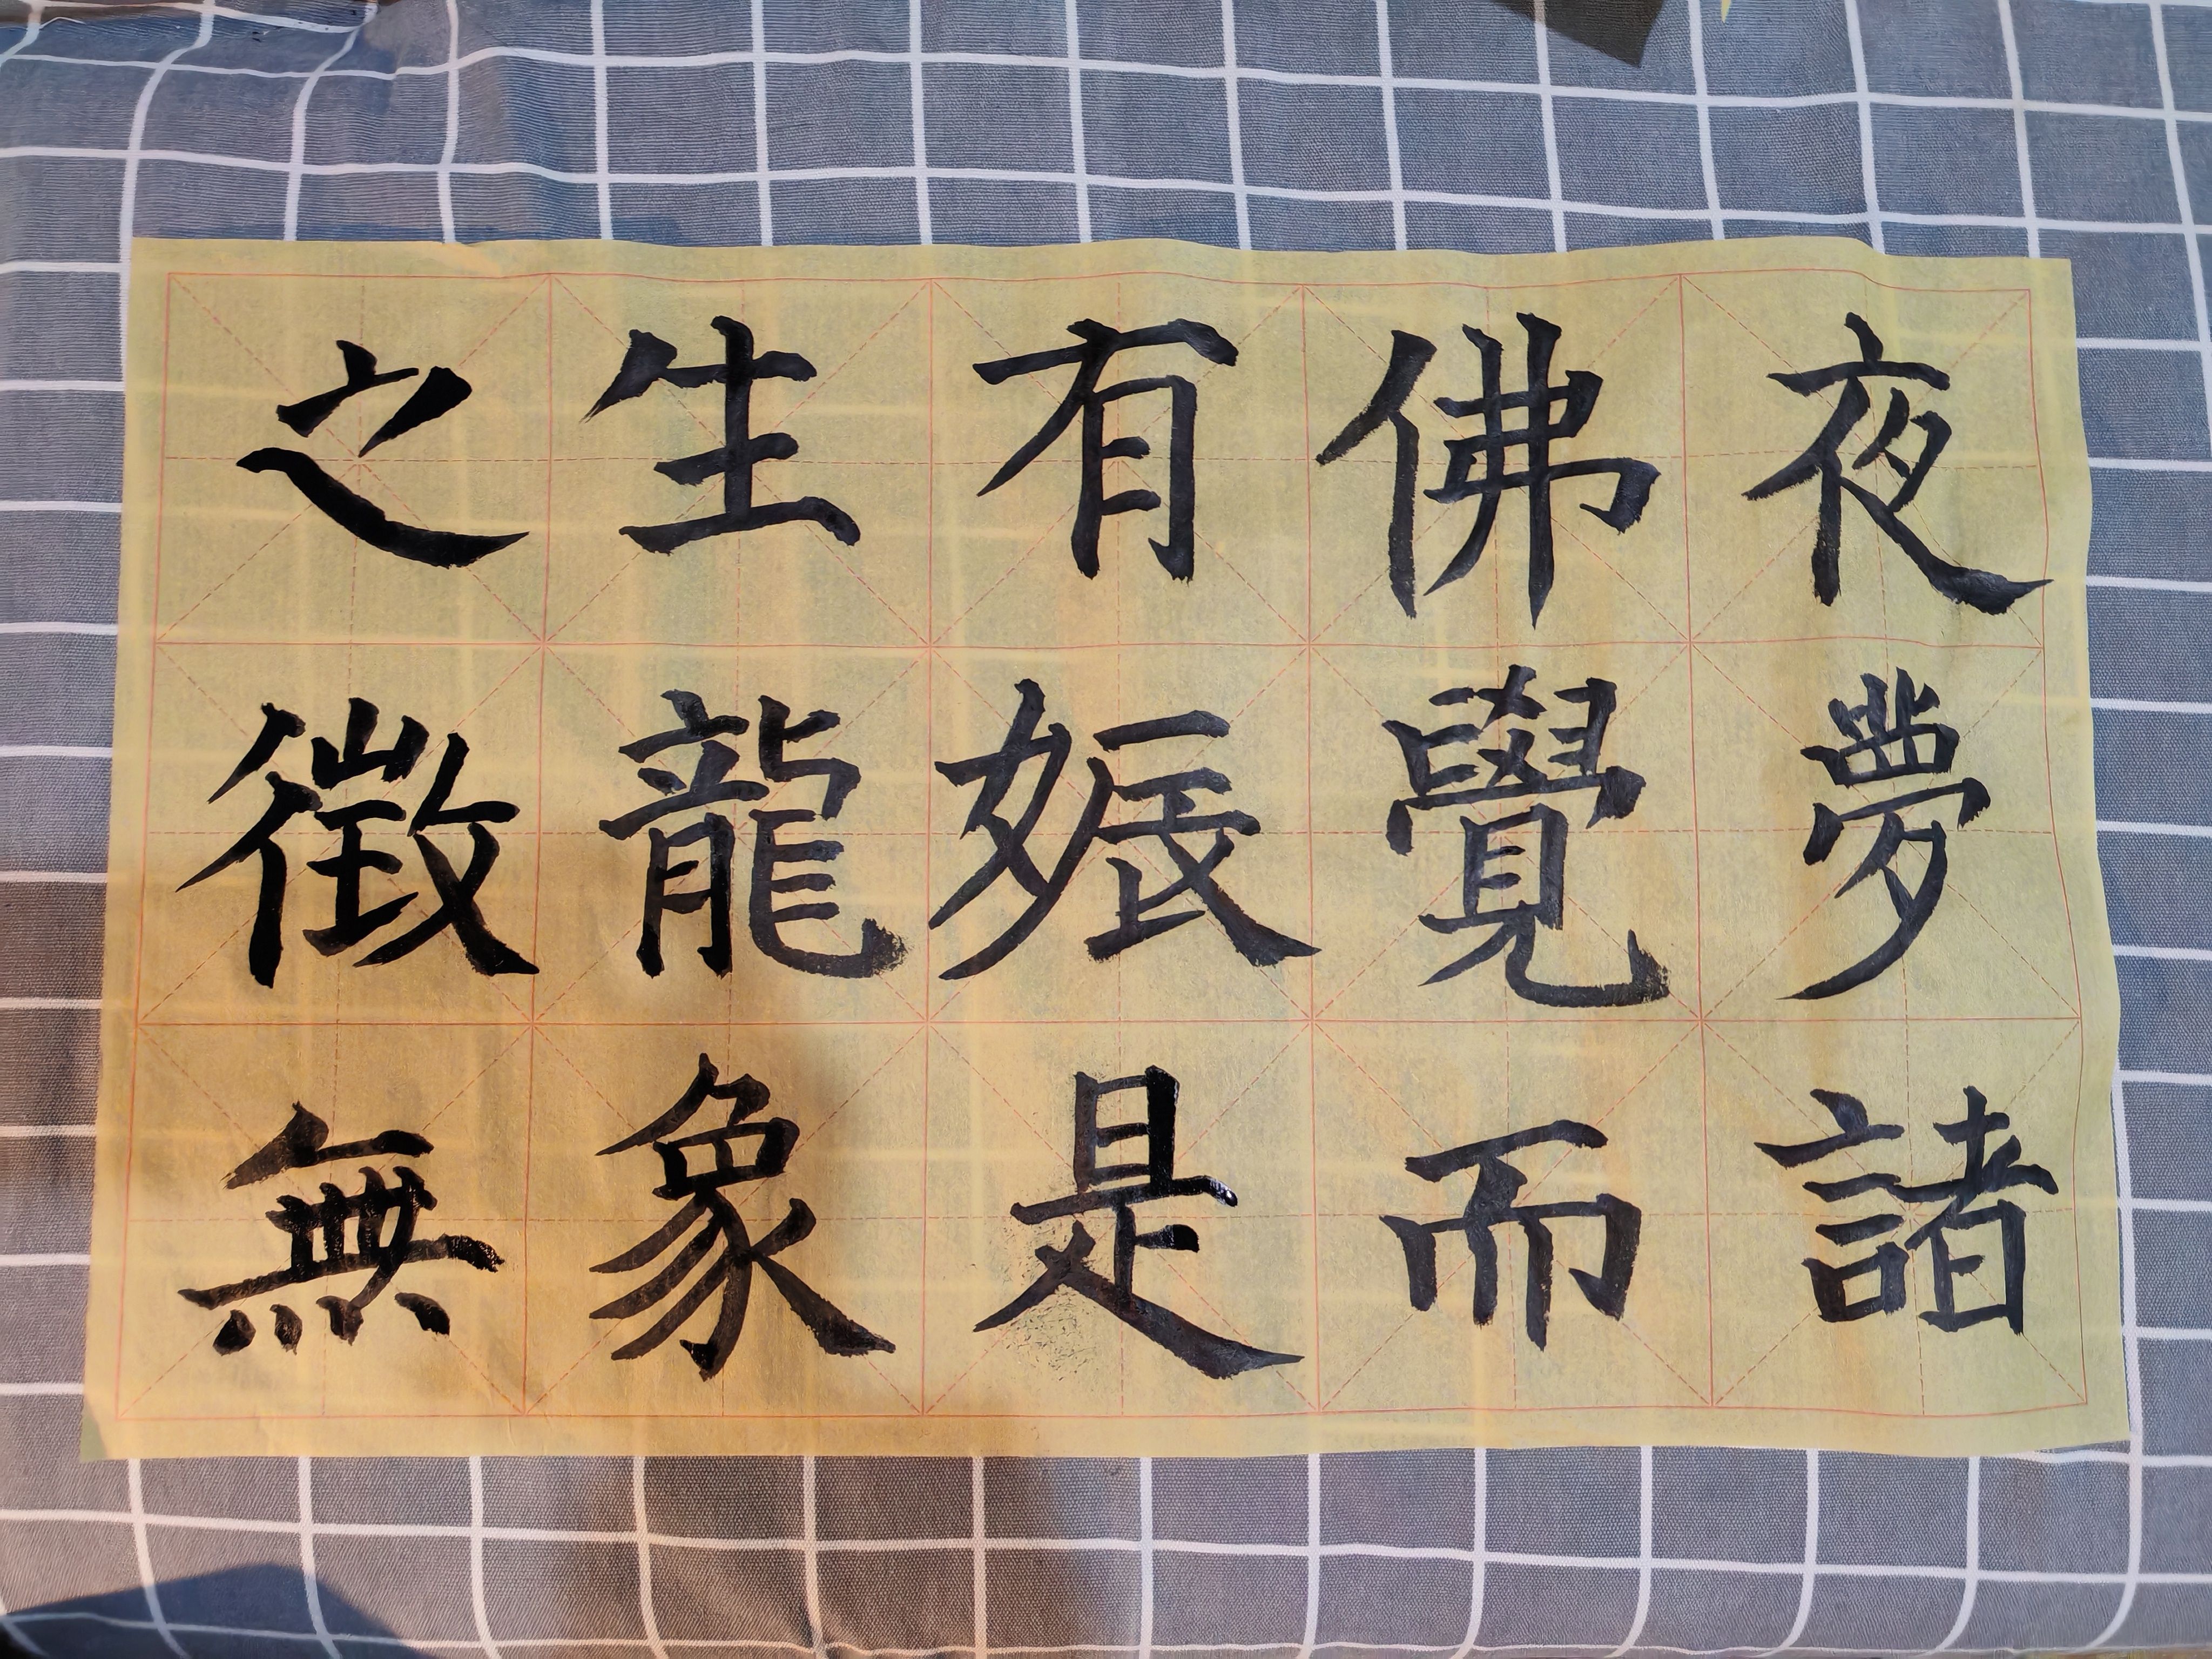 夜夢諸
佛覺而
有娠是
生龍象
之徵無